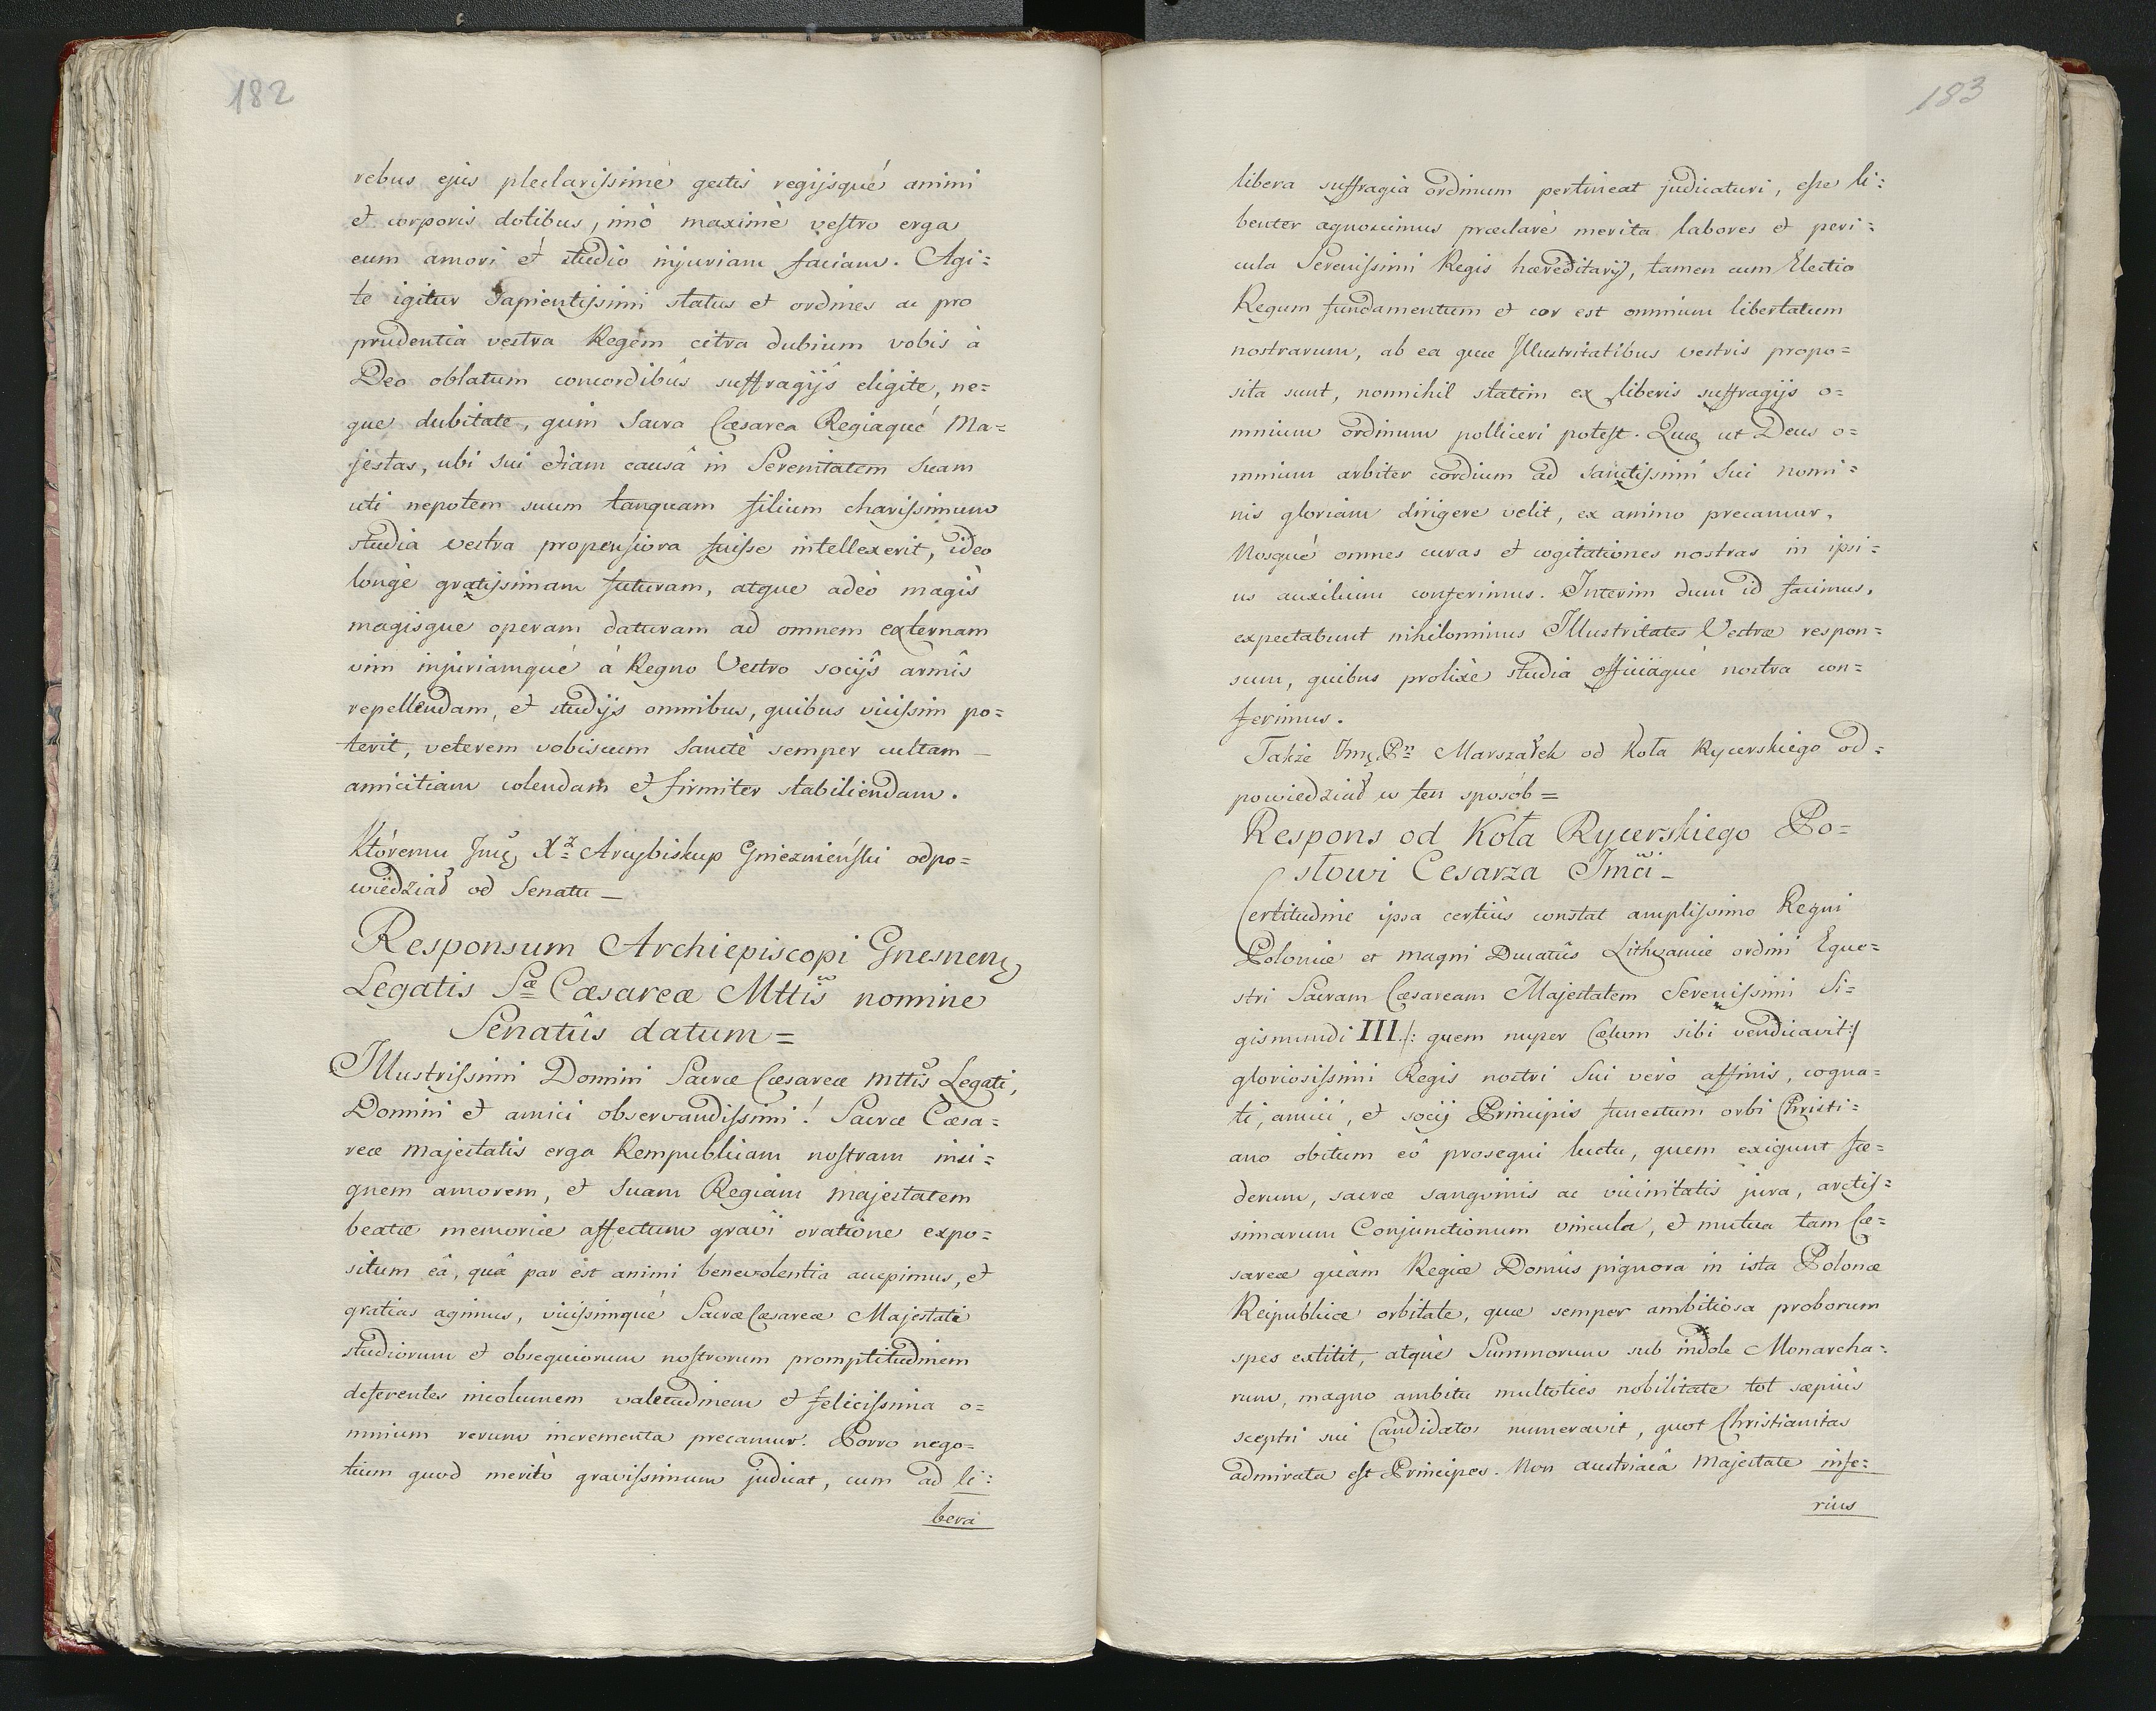 182
rebus ejus pleclarissimè gestis regijsqué animi
et corporis dotibus, imò maximè vestro erga
eum amori et studio injuriam faciam. Agi=
te igitur Sapientissimi status et ordines ac pro
prudentia vestra Regem citra dubium vobis à
Deo oblatum concordibûs suffragijs eligite, ne=
que dubitate, quin Sacra Cæsarea Regiaqué Ma=
jestas, ubi sui etiam causâ in Serenitatem Suam
uti nepotem suum tanquam filium charissimum
studia vestra propensiora fuisse intellexerit, ideo
longè gratissimam futuram, atque adeò magis
magisque operam daturam ad omnem externam
vim injuriamqué à Regno Vestro socijs armîs
repellendam, et studijs omnibus, quibus vicissim po=
terit, veterem vobiscum Sanctè semper cultam
amicitiam colendam et firmiter stabiliendam.
Któremu Jmę Xz Arcybiskup Gnieznieński odpo=
wiedział od Senatu —
Responsum Archiepiscopi Gnesnenę
Legatis Sæ Cæsareæ Mttis nomine
Senatûs datum =
Illustrissimi Domini Sacræ Cæsareæ Mttis Legati,
Domini et amici observandissimi! Sacræ Cæsa=
reæ majestatis erga Rempublicam nostram insi=
gnem amorem, et Suam Regiam majestatem
beatæ memoriæ affectum gravi oratione expo=
situm eâ, quâ par est animi benevolentia accepimus, et
gratias agimus, vicissimqué Sacræ Cæsareæ Majestati
studiorum et obsequiorum nostrorum promptitudinem
deferentes incolumem valetudinem et felicissima o=
mnium rerum incrementa precamur. Porro nego=
tium quod meritò gravissimum judicat, cum ad li=
bera
183
libera suffragia ordinum pertineat judicaturi, esse li=
benter agnoscimus præclarè merita labores et peri=
cula Serenissimi Regis hæreditarij, tamen cum Electio
Regum fundamentum et cor est omnium libertatum
nostrarum, ab ea quæ Illustritatibus vestris propo=
sita sunt, nonnihil statim ex liberis suffragijs o=
mnium ordinum polliceri potest. Quæ ut Deus o=
mnium arbiter cordium ad Sanctissimi Sui nomi=
nis gloriam dirigere velit, ex animo precamur,
Nosqué omnes curas et cogitationes nostras in ipsi=
us auxilium conferimus. Interim dum id facimus,
expectabunt nihilominus Illustritates Vestræ respon=
sum, quibus prolixè studia officiaqué nostra con=
ferimus.
Także Jmę Pn Marszałek od Koła Rycerskiego od=
powiedział w ten sposób =
Respons od Koła Rycerskiego Po=
słowi Cesarza Jmci –
Certitudine ipsa certiùs constat amplissimo Regni
Poloniæ et magni Ducatûs Lithvaniæ ordini Eque=
stri Sacram Cæsaream Majestatem Serenissimi Si=
gismundi III /: quem nuper Cælum sibi vendicavit :/
gloriosissimi Regis nostri Sui verò affinis, cogna=
ti, amici, et socij Principis funestum orbi Christi=
ano obitum eô prosequi luctu, quem exigunt fœ=
derum, sacræ sangvinis ac vicinitatis jura, arctis=
simarum Conjunctionum vincula, et mutua tam Cæ=
sareæ quàm Regiæ Domûs pignora in ista Polonæ
Reipublicæ orbitate, quæ semper ambitiosa proborum
spes extitit, atquè Summorum sub indole Monarcha=
rum, magno ambitu multoties nobilitate tot sæpiùs
sceptri sui Candidatos numeravit, quot Christianitas
admirata est Principes. Non austriacâ Majestate infe=
rius